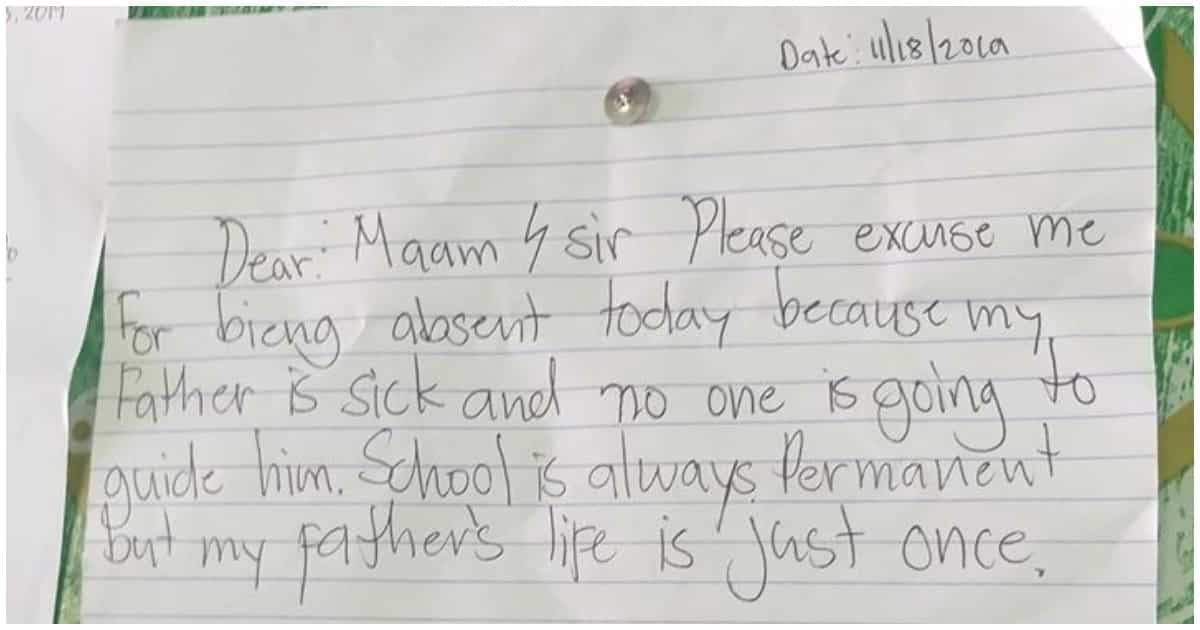 , 2019
Date: 11/18/2019
Dear: Maam & sir Please excuse me
For bieng absent today because my
Father is sick and no one is going to
guide him. School is always Permanent
but my father's life is just once.